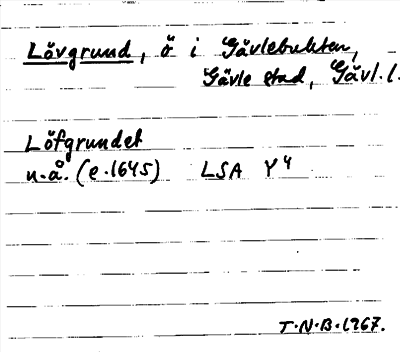 Lövgrund, ö i Gävlebukten,
Gävle stad, Gävl.l.
Löfgrundet
n.å. (e.1645) LSA Y4
T.N.B.1967.